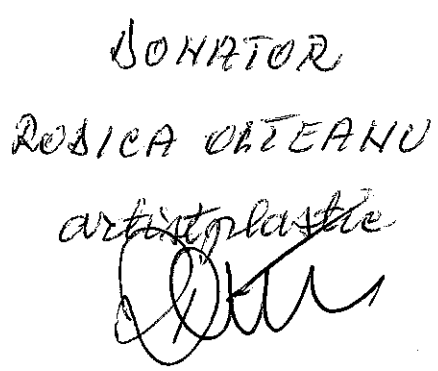 DONATOR
RODICA OLTEANU
artist plastic